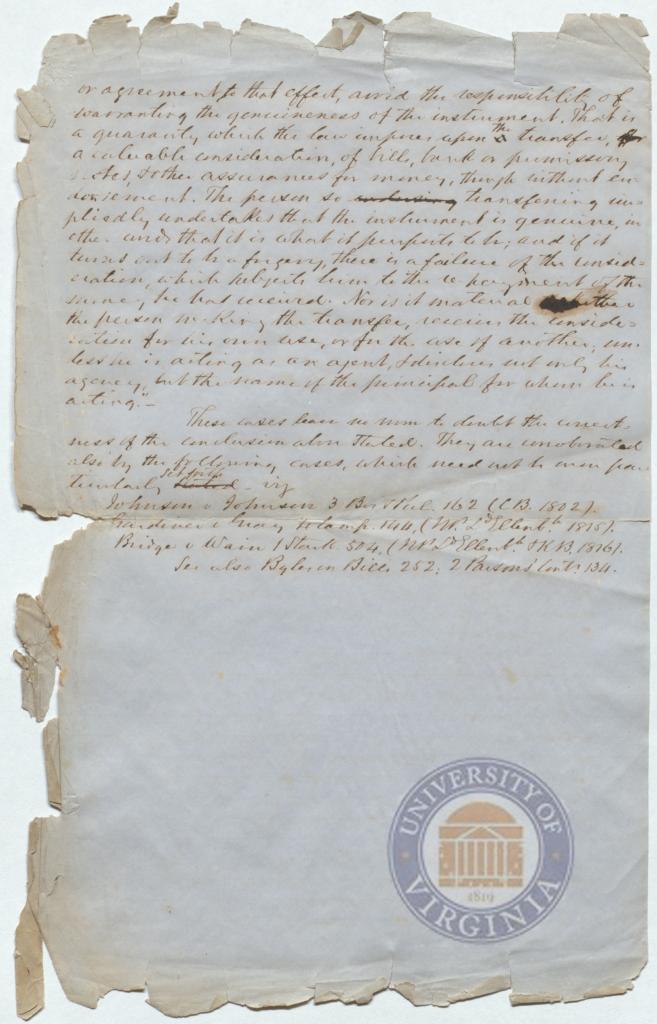 or agreement to that effect, avoid the responsibility of
warranting the genuineness of the instrument. That is
a guaranty, which the law imposes upon the transfer, for
a valuable consideration, of bill, bank or promissory
notes, & other assurances for money, though without en-
dorsement. The person so endorsing transferring im-
pliedly undertakes that the instrument is genuine, in
other words that it is what it purports to be; and if it
turns out to be a forgery, there is a failure of the consid-
eration, which subjects him to the re-payment of the
money he has received. Nor is it material whether
the person making the transfer, receives the conside-
ration for his own use, or for the use of another; un-
less he is acting as an agent, & discloses not only his
agency, but the name of the principal for whom he is
acting."-
These cases leave no room to doubt the correct-
ness of the conclusion above stated. They are corroborated
also by the following cases, which need not be more par-
ticularly set forth stated - viz
Johnson v Johnson 3 Bos & Pul. 162 (C.B. 1802).
Gardiner v Gray 4 Camp. 144, (N.P. Ld Ellenbh 1815).
Bridge v Wain 1 Stark 504, (N.P. Ld Ellenbh & K.B. 1816).
See also Byles on Bills 252; 2 Parsons' Conts. 134.
UNIVERSITY OF
1819
VIRGINIA